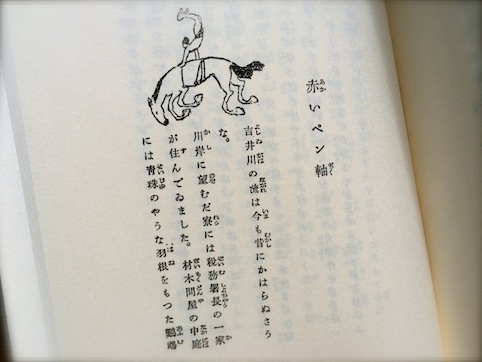 赤いペン軸
吉井川の流は今も昔にかはらぬさうな。
川岸に望むだ寮には税務署長の一家
が住んでゐました。材木問屋の中庭
には青珠のやうな羽根をもつた鸚鵡